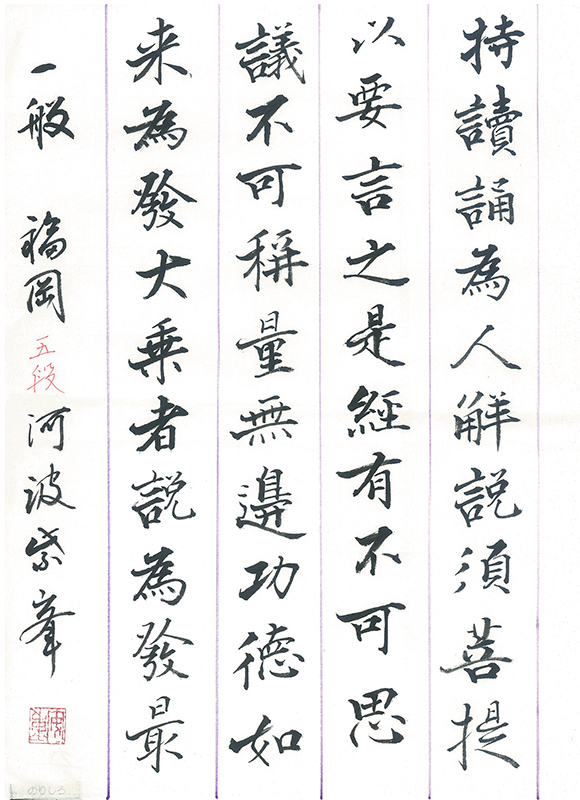 持讀誦為人解説須菩提
以要言之是經有不可思
議不可稱量無邊功德如
来為發大乗者説為發最
一般 福岡 五段 河波紫峯
のりしろ